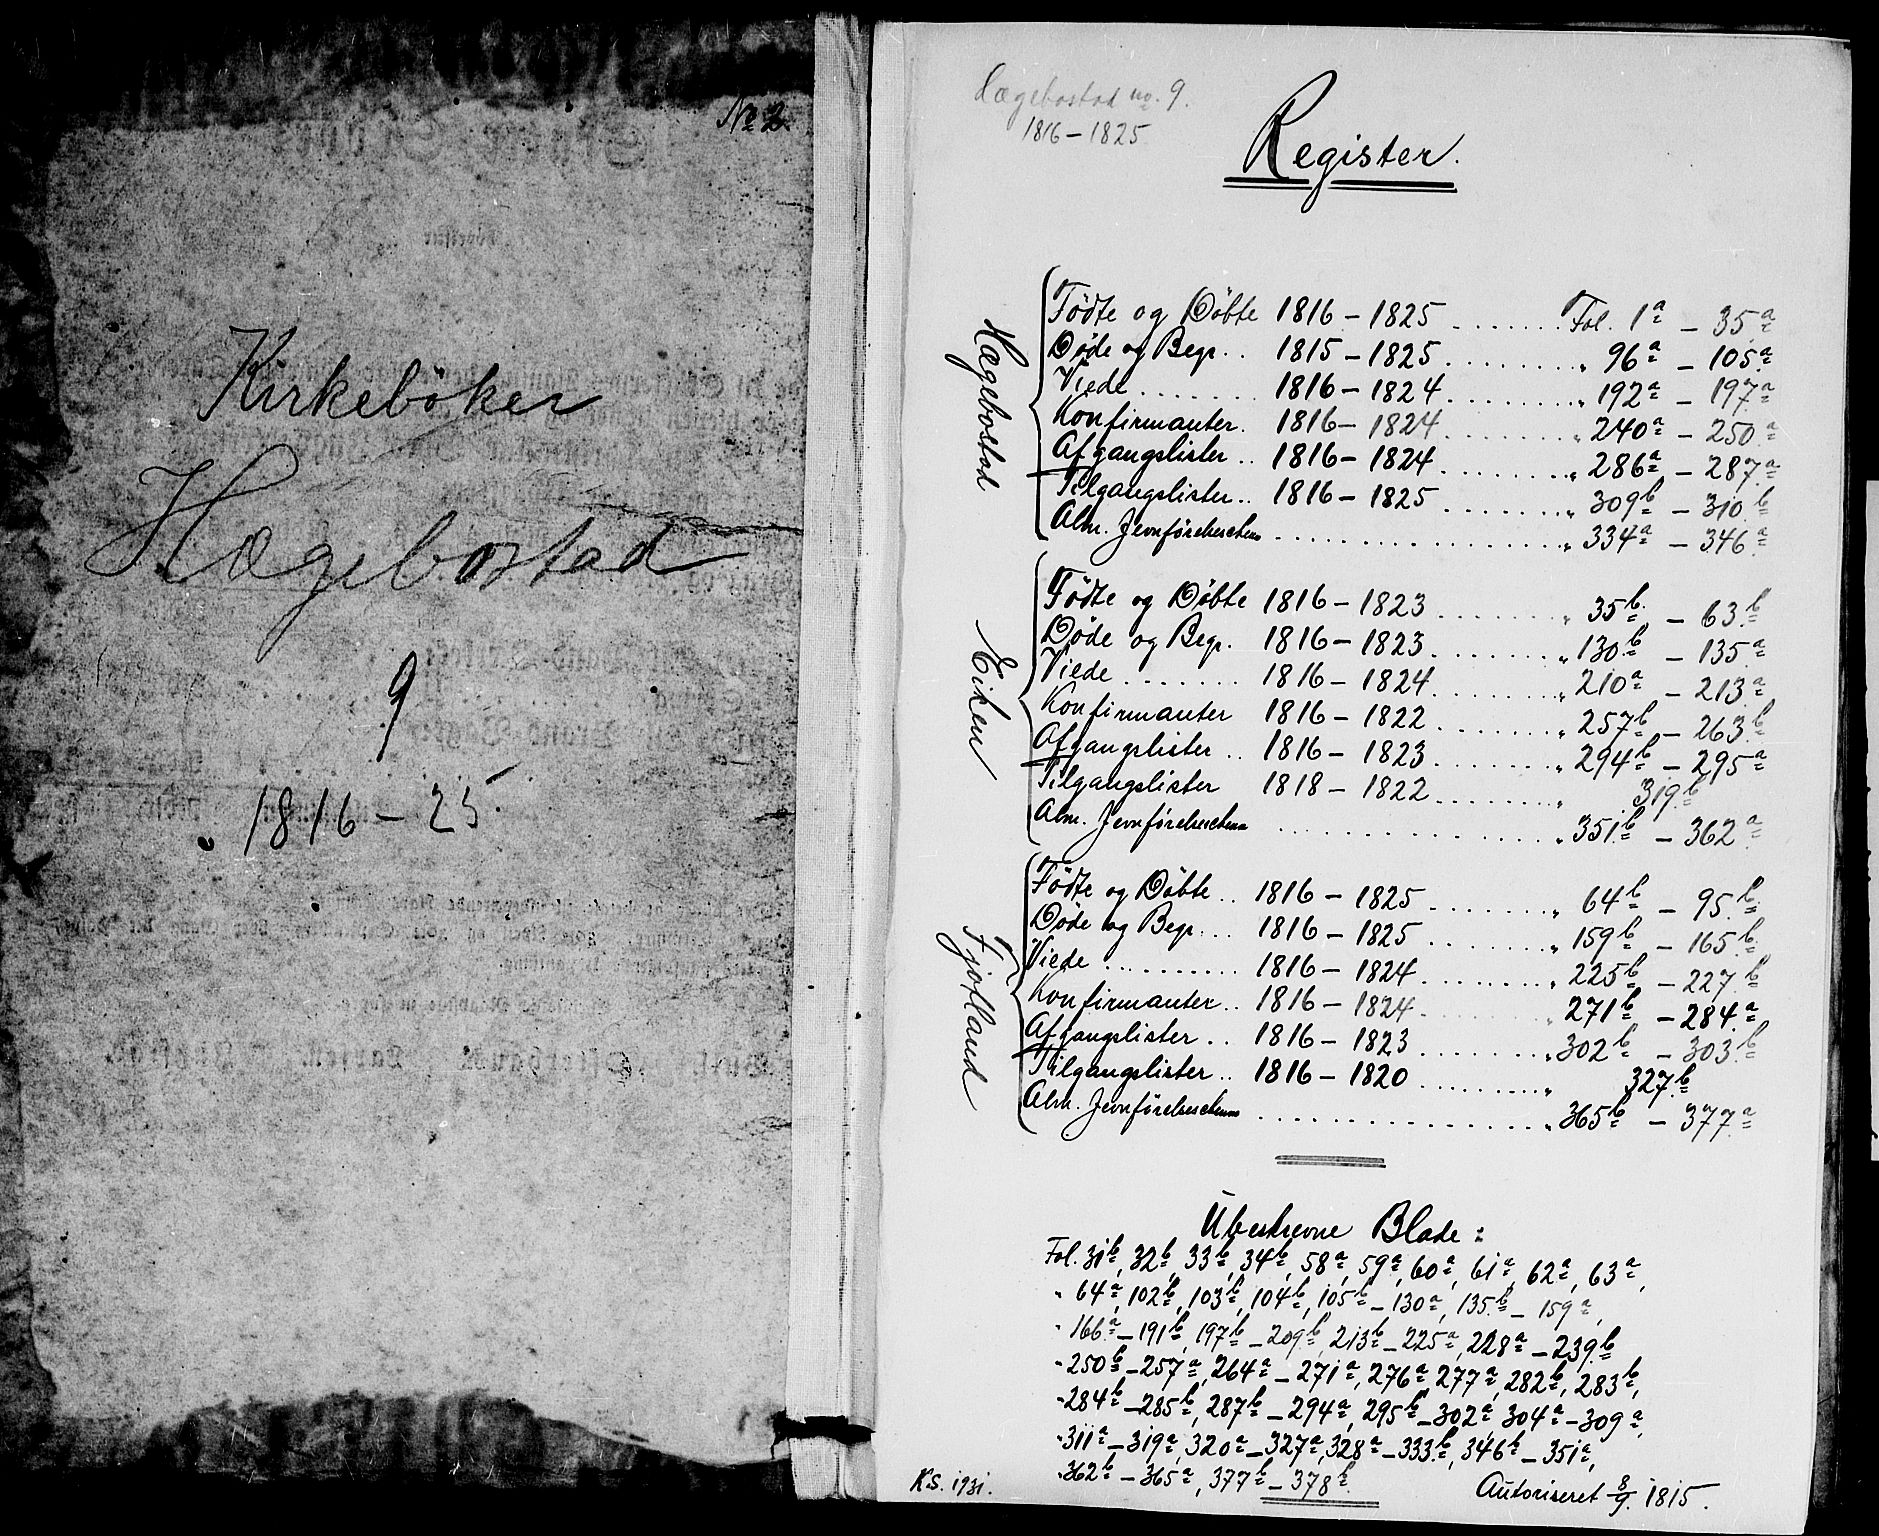 No 2.
Kirkebøker
Hægebostad
9
1816 – 25.
Lægebostad no. 9.
1816 – 1825
Register.
Hægebostad
Fødte og Døbte 1816 – 1825 ....... Fol. 1a – 35a
Døde og Begr. .. 1815 – 1825 ......... „ 96a – 105a
Viede ........ 1816 – 1824 ......... „ 192a – 197a
Konfirmanter. 1816 – 1824 ......... „ 240a – 250a
Afgangslister .. 1816 – 1824 ......... „ 286a – 287a
Tilgangslister .. 1816 – 1825 ......... „ 309b – 310b
Alm. Jevnførelseschema ................. „ 334a – 346a
Eiken
Fødte og Døbte 1816 – 1823 ........ „ 35b – 63b
Døde og Begr. 1816 – 1823 ........ „ 130b – 135a
Viede ....... 1816 – 1824 ........ „ 210a – 213a
Konfirmanter 1816 – 1822 ........ „ 257b – 263b
Afgangslister .. 1816 – 1823 ........ „ 294b – 295a
Tilgangslister 1818 – 1822 ........ „ 319b
Alm. Jevnførelseschema ................. „ 351b – 362a
Fjotland
Fødte og Døbte .. 1816 – 1825 ........ „ 64b – 95b
Døde og Begr. .. 1816 – 1825 ........ „ 159b – 165b
Viede .......... 1816 – 1824 ........ „ 225b – 227b
Konfirmanter .. 1816 – 1824 ........ „ 271b – 284a
Afgangslister .. 1816 – 1823 ........ „ 302b – 303b
Tilgangslister .. 1816 – 1820 ........ „ 327b
Alm. Jevnførelseschema ................. „ 365b – 377a
Ubeskrevne Blade:
Fol. 31b, 32b, 33b, 34b, 58a, 59a, 60a, 61a, 62a, 63a,
„ 64a, 102b, 103b, 104b, 105b – 130a, 135b – 159a,
„ 166a – 191b, 197b – 209b, 213b – 225a, 228a – 239b
„ 250b – 257a, 264a – 271a, 276a 277a, 282b, 283b,
„ 284b – 285b, 287b – 294a, 295b – 302a, 304a – 309a,
„ 311a – 319a, 320a – 327a, 328a – 333b, 346b – 351a,
„ 362b – 365a, 377b – 378b.
K.S. 1931.
Autoriseret 8/9. 1815.